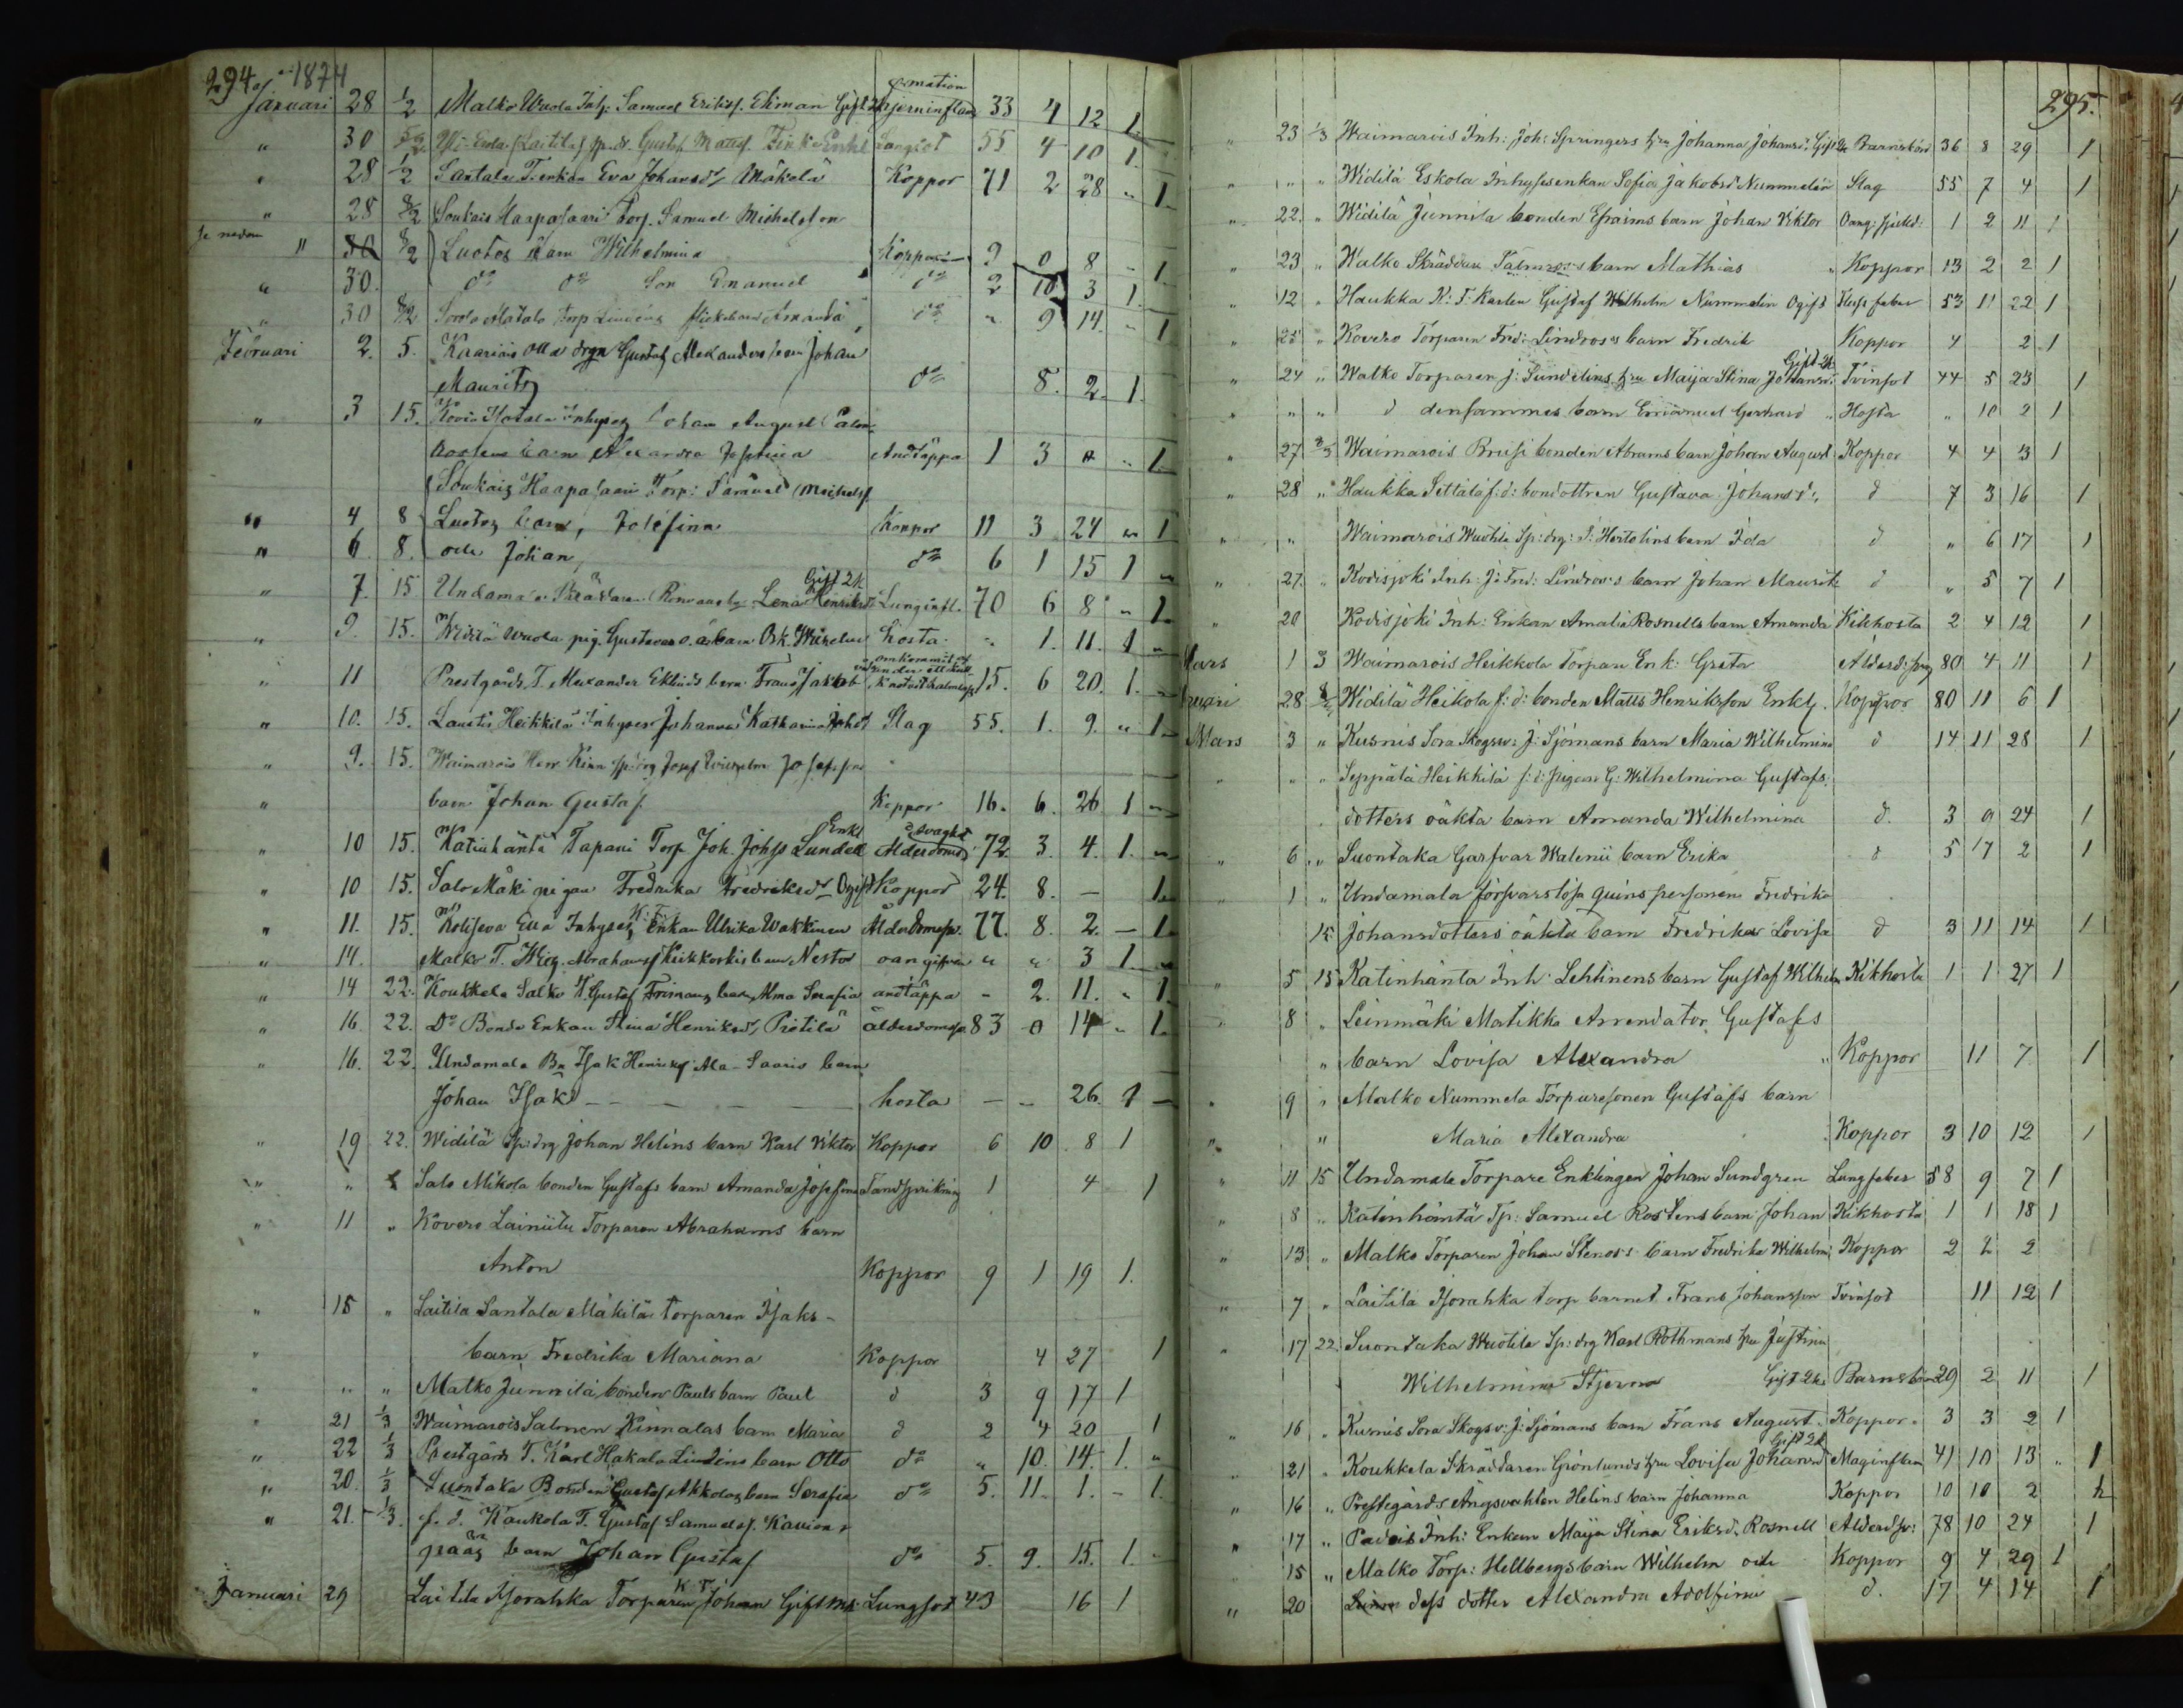 294 1874
Januari 28 1/2 Malko Wuola Inh: Samuel Erikss. Ekman Gift 33 4 12 1
" 30 Gustaf Matts. Enkl Lungsot 55 4 10 1
" 28 1/2 Santala T. enkan Eva Johansdr Mäkelä Koppor 71 2 28 " 1
" 28 8/2 Soukais Haapasaari Torp. Samuel Michelsson
se nedan " 30 8/2 Luotos barn Wilhelmina Koppor 9 0 8 - 1
" 30. do do Son Emanuel do 2 10 3 1
" 30 8/2 Torp Lindéns flickebarn Amanda do " 9 14 " 1
Februari 2. 5. Kaariais Otta drgn Gustaf Alexanders son Johan
Mauritz do 8. 2. 1.
" 3 15. Inhyses Johan August
barn Alexandra Josefina Andtäppa 1 3 " 1
Soukais Haapasaari Torp: Samuel Michelss.
" 4 8 Luotos barn, Josefina Koppor 11 3 24 " 1
" 6 8. och Johan, do 6 1 15 1 "
" 7. 15 Undamala Skräddaren Lena Henriksdr Gift 2k Lunginfl. 70 6 8 " 1
" 9. 15. Widilä Wuola pig. Gustavas o.ä. barn hosta " 1. 11. 1 "
" 11 Prestgårds T. Alexander Eklunds barn Frans Jakob omkommit 15. 6 20. 1. "
" 10. 15. Lautis, Heikkilä Inhyses Johanna Katharina Slag 55. 1. 9. " 1
" 9. 15. Waimarois Josef Wilhelm Josefss
" barn Johan Gustaf Koppor 16. 6. 26 1 "
" 10 15. Katinhäntä Tapani Torp Joh. Johss Lundell Enkl Ålderdoms svaght 72. 3. 4. 1. "
" 10 15. Salo Mäki pigan Fredrika Fredriksdr Ogift Koppor 24. 8. — 1.
" 11. 15. Koliseva Eva Inhyses Enkan Ulrika Wakkinen Ålderdomssv. 77. 8. 2. — 1
" 14. Malko T. Abrahams Kiikkoskis barn Nestor oangifven " " 3 1. "
" 14 22. Koukkela Salko Gustaf Frimans barn Alma Serafia andtäppa - 2. 11. " 1
" 16. 22. Do Bonde Enkan Stina Henriksdr, Pietilä ålderdomssv 83 0 14 " 1
" 16. 22. Undamala Bn Isak Henriks. Ala-Saaris barn
Johan Isak hosta — — 26. 1 —
" 19 22. Widilä Sp: drg Johan Helins barn Karl Viktor Koppor 6 10 8 1
" " " Salo Mikola bonden Gustafs barn Amanda Josefina Tandsprickning 1 4 1
" 11 " Kovero Lainiitu Torparen Abrahams barn
Anton Koppor 9 1 19 1.
" 15 " Laitila Santala Mäkilä torparen Isaks-
" barn Fredrika Mariana Koppor 4 27 1
" " " Malko Junnila bonden Pauls barn Paul d 3 9 17 1
" 21 1/3 Waimarois Salmen Kinnalas barn Maria d 2 4 20 1
" 22 1/3 Prestgårds T. Karl Hakala Lindéns barn Otto do " 10. 14. 1. "
" 20. 1/3 Suontaka Bonden Gustaf Akkolas barn Serafia do 5. 11. 1. - 1.
" 21. 1/3. f.d. Kaukola T. Gustaf Samuelss. Kauion-
pääs barn Johan Gustaf do 5. 9. 15. 1. -
Januari 29 Laitila Isorahka Torparen Johan Gift Lungsot 43 16 1
295.
" 23 1/3 Waimarois Inh: Joh: Springers hru Johanna Johansdr, Gift 2k Barnsbörd 36 8 29 1
" " " Widilä Eskola Inhysesenkan Sofia Jakobsdr Nummelin Slag 55 7 4 1
" 22. " Widilä Junnila bonden Efraims barn Johan Viktor Oang: sjukd: 1 2 11 1
" 23 " Walko Skräddare Palmroos's barn Mathias " Koppor 13 2 2 1
" 12 " Haukka K: F: Karlen Gustaf Wilhelm Nummelin Ogift 53 11 22 1
" 25 " Kovero Torparen Fred: Lindroos's barn Fredrik Koppor 4 2 1
" 24 " Walko Torparen J: Sundelins hru Maija Stina Johansdr: Gift 2k Tvinsot 44 5 23 1
" " " d densammes barn Emanuel Gerhard " Hosta " 10 2 1
" 27 8/3 Waimarois Prusi bonden Abrams barn Johan August Koppor 4 4 3 1
" 28 " Haukka Sittälä f: d: bondottren Gustava Johansd:, d 7 3 16 1
" " Waimarois Wuotila Sp: drg: I: Hertolins barn Ida d " 6 17 1
" 27. " Kodisjoki Inh: J: Fred: Lindroos's barn Johan Mauritz d " 5 7 1
" 20 Kodisjoki Inh: Enkan Amalia Rosnells barn Amanda Kikhosta 2 4 12 1
Mars 1 3 Waimarois Heikkola Torpare Enk: Greta Ålderd: svag 80 4 11 1
28 8/3 Widilä Heikola f: d: bonden Matts Henriksson Enkl. Koppor 80 11 6 1
Mars 3 " Kusnis Sora Skogsv: J: Sjömans barn Maria Wilhelmina d 14 11 28 1
" " " Seppälä Heikkilä f: d: pigan G: Wilhelmina Gustafs-
dotters oäkta barn Amanda Wilhelmina d. 3 9 24 1
" 6 " Suontaka Garfvar Walenii barn Erika d 5 7 2 1
" 1 " Undamala försvarslösa quinspersonen Fredrika
15 Johansdotters oäkta barn Fredrika Lovisa d 3 11 14 1
" 5 15 Katinhänta Inh: Lehtinens barn Gustaf Wilhelm Kikhosta 1 1 27 1
8 " Leinmäki Matikka Arrendator Gustafs
" barn Lovisa Alexandra " Koppor 11 7 1
" 9 " Malko Nummela Torparesonen Gustafs barn
" " Maria Alexandra Koppor 3 10 12 1
" 11 15 Undamala Torpare Enklingen Johan Sundgren Lungfeber 58 9 7 1
" 8 " Katinhäntä Tp: Samuel Rostens barn Johan Kikhosta 1 1 18 1
" 13 " Malko Torparen Johan Stenros's barn Fredrika Wilhelmi: Koppor 2 2 2
" 7 " Laitila Isorahka torp barnet Frans Johansson Tvinsot 11 12 1
" 17 22 Suontaka Wuotila Sp: drg Karl Rothmans hru Justina
Wilhelmina Stjerna Gift 2k Barnsbörd 29 2 11 1
" 16 " Kusnis Sora Skogsv: J: Sjömans barn Frans August Koppor 3 3 2 1
" 21 " Koukkela Skräddaren Grönlunds hru Lovisa Johansd Gift 2k Maginflam 41 10 13 " 1
" 16 " Prestegårds Ängsvakten Helins barn Johanna Koppor 10 10 2
" 17 " Padois Inh: Enkan Maija Stina Eriksd: Rosnell Ålderdsv: 78 10 24 1
15 " Malko Torp: Hellbergs barn Wilhelm och Koppor 9 4 29 1
" 20 dess dotter Alexandra Adolfina d. 17 4 14 1